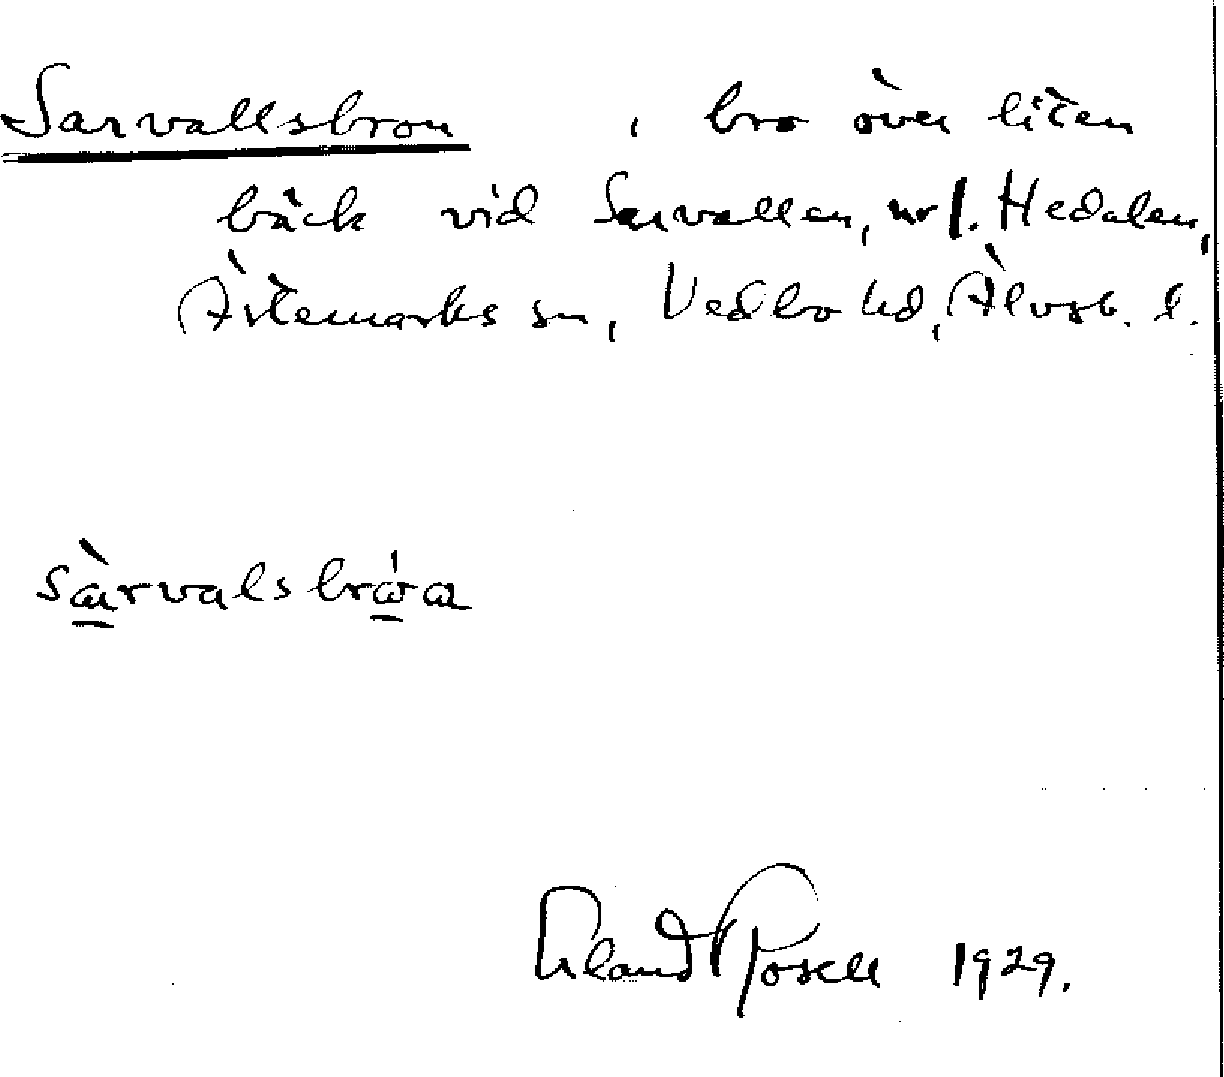 Sarvallsbron , bro över liten
bäck vid Sarvallen, nr 1. Hedalen,
Ärtemarks sn, Vedbo hd, Älvsb. l.
sàrvalsbróa
Erland Rosell 1929.